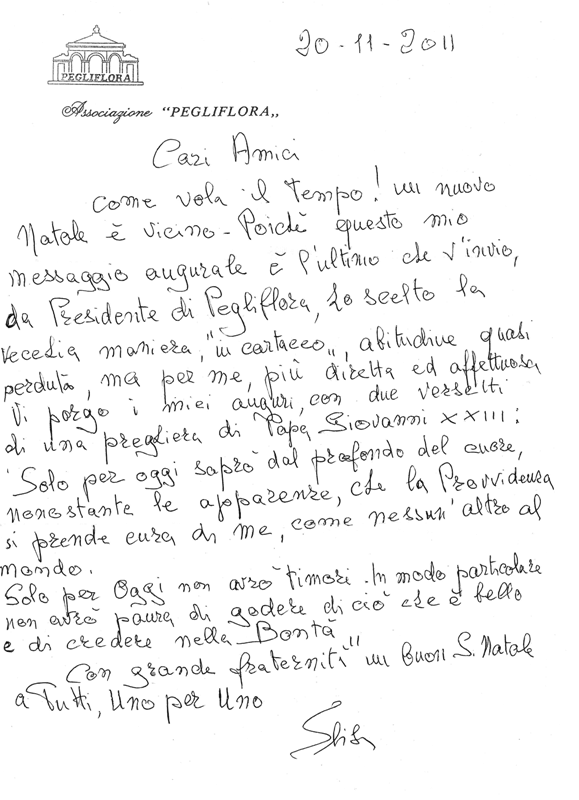 20-11-2011
PEGLIFLORA
Associazione “PEGLIFLORA„
Cari Amici
come vola il tempo! un nuovo
Natale è vicino - Poichè questo mio
messaggio augurale è l'ultimo che v'invio,
da Presidente di Pegliflora, ho scelto la
vecchia maniera, "in cartaceo„, abitudine quasi
perduta, ma per me, più diretta ed affettuosa
Vi porgo i miei auguri, con due versetti
di una preghiera di Papa Giovanni XXIII:
"Solo per oggi saprò dal profondo del cuore,
nonostante le apparenze, che la Provvidenza
si prende cura di me, come nessun'altro al
mondo.
Solo per Oggi non avrò timori. In modo particolare
non avrò paura di godere di ciò che è bello
e di credere nella Bontà"
Con grande fraternità un buon S. Natale
a Tutti, Uno per Uno